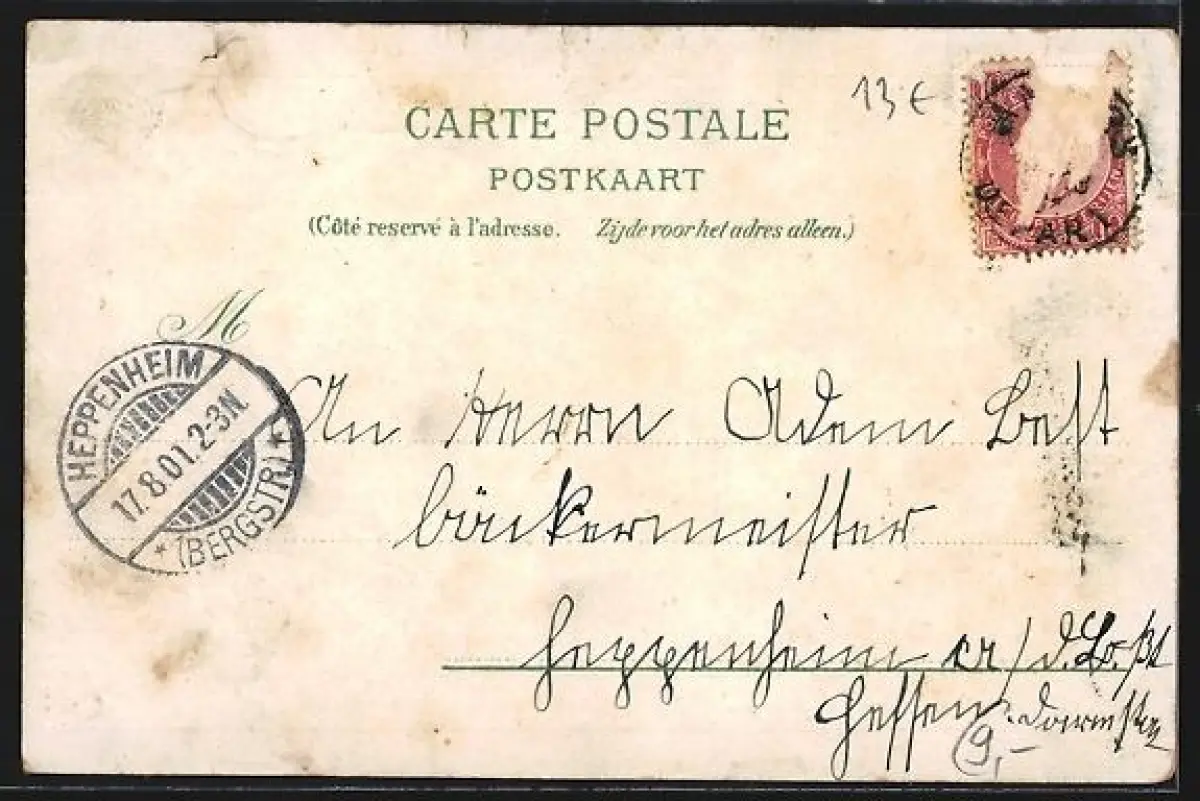 13 €
CARTE POSTALE
POSTKAART
(Côté reservé à l'adresse. Zijde voor het adres alleen.)
M
HEPPENHEIM
17.8.01. 2-3N.
* (BERGSTR.) *
An Herrn Adem Best
bäckermeister
Heppenheim a/d.
Hessen
9,-